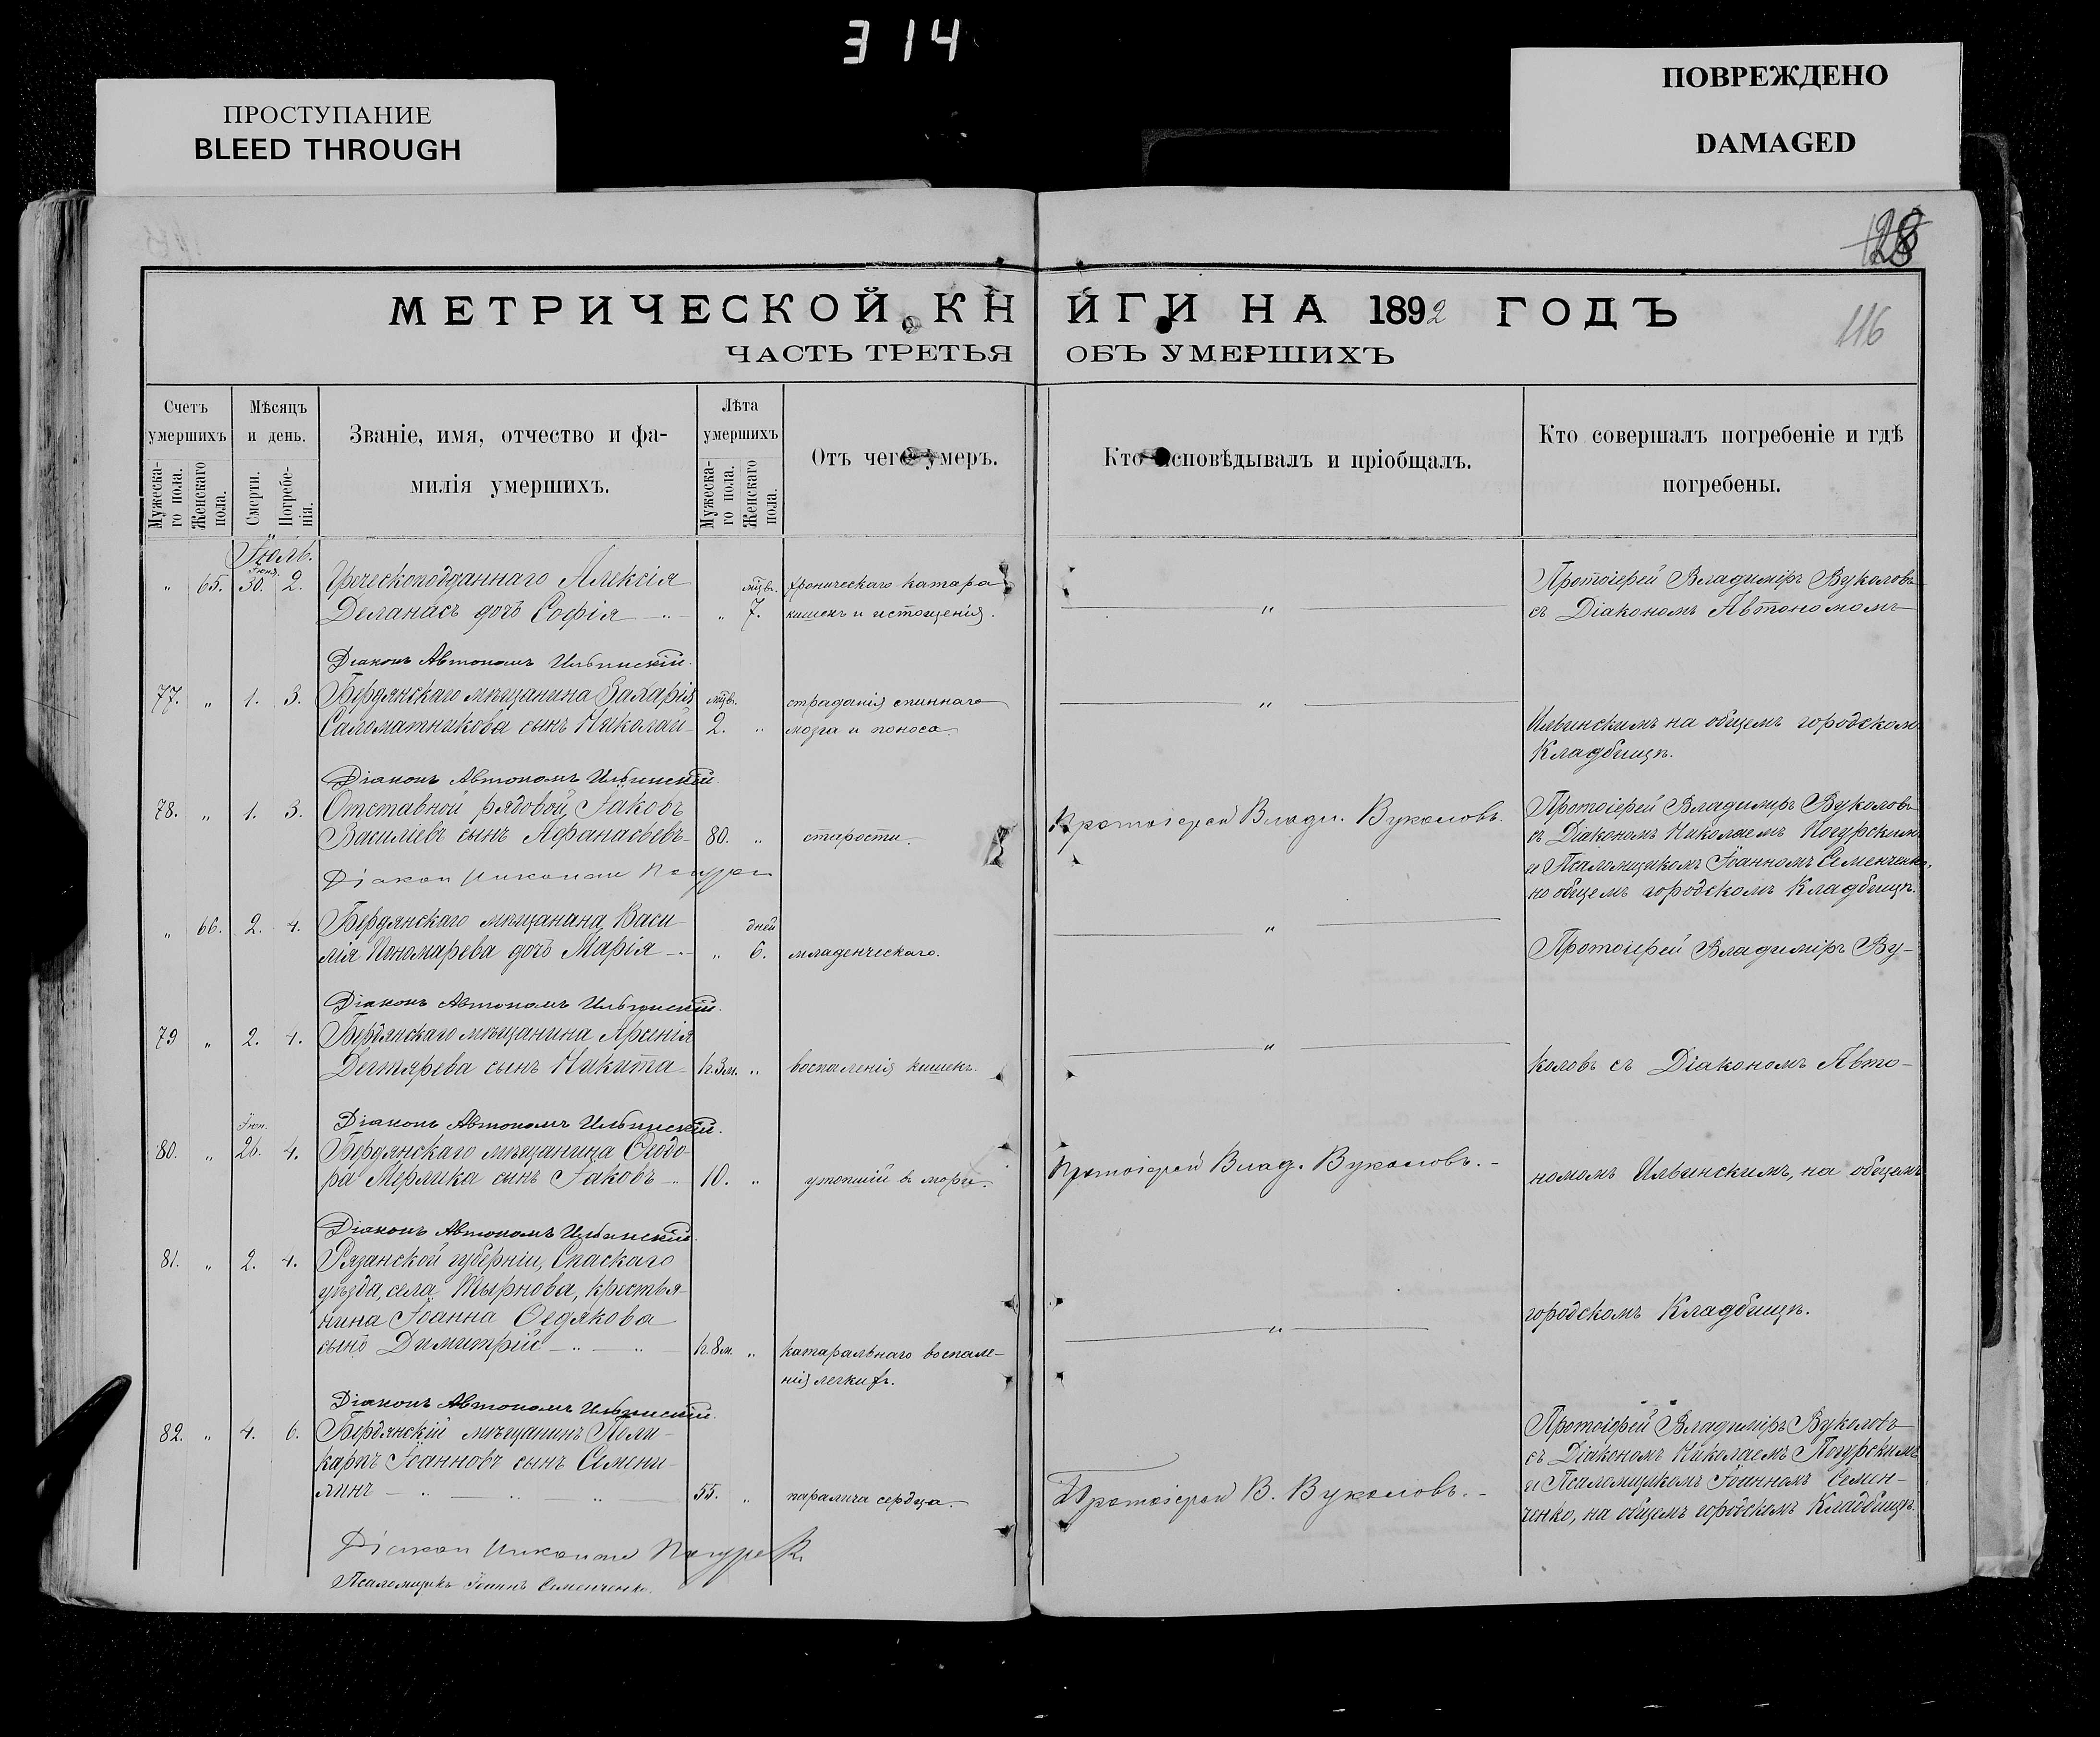 314
ПРОСТУПАНИЕ
BLEED THROUGH
ПОВРЕЖДЕНО
DAMAGED
128
116
МЕТРИЧЕСКОЙ КНИГИ НА 1892 ГОДЪ
ЧАСТЬ ТРЕТЬЯ ОБЪ УМЕРШИХЪ
Счетъ умершихъ
Мужеска-го пола.
Женскаго пола.
Мѣсяцъ и день.
Смерти.
Погребе-нія.
Званіе, имя, отчество и фа-
милія умершихъ.
Лѣта умершихъ
Мужеска-го пола.
Женскаго пола.
Отъ чего умеръ.
Кто исповѣдывалъ и пріобщалъ.
Кто совершалъ погребеніе и гдѣ
погребены.
Іюль.
Іюня
" 65. 30. 2. Греческоподданнаго Алексія мѣс. хроническаго катара Протоіерей Владиміръ Вуколовъ
Деланасъ дочь Софія " 7. кишекъ и истощенія. " съ Діакономъ Автономомъ
Діаконъ Автономъ Ильинскій.
77. " 1. 3. Бердянскаго мѣщанина Захарія мѣс. страданія спиннаго "
Саломатникова сынъ Николай 2. " мозга и поноса. Ильинскимъ на общемъ городскомъ
Кладбищѣ.
Діаконъ Автономъ Ильинскій.
78. " 1. 3. Отставной рядовой Іаковъ Протоіерей Влади. Вуколовъ. Протоіерей Владиміръ Вуколовъ
Василіевъ сынъ Аѳанасьевъ 80. " старости. съ Діакономъ Николаемъ Погурскимъ
и Псаломщикомъ Іоанномъ Семенченко,
Діакон Николай на общемъ городскомъ Кладбищѣ.
" 66. 2. 4. Бердянскаго мѣщанина Васи дней "
лія Пономарева дочь Марія " 6. младенческаго. Протоіерей Владиміръ Ву-
Діаконъ Автономъ Ильинскій.
79 " 2. 4. Бердянскаго мѣщанина Арсенія "
Дегтярева сынъ Никита 1г.3м. " воспаленія кишекъ. коловъ съ Діакономъ Авто-
Діаконъ Автономъ Ильинскій.
Іюн.
80. " 26. 4. Бердянскаго мѣщанина Ѳеодо- Протоіерей Влад. Вуколовъ.
ра Мерлика сынъ Іаковъ 10. " утопшій въ морѣ. номомъ Ильинскимъ, на общемъ
Діаконъ Автономъ Ильинскій.
81. " 2. 4. Рязанской губерніи, Спаскаго
уѣзда, села Тырнова, крестья-
нина Іоанна Ѳедякова городскомъ Кладбищѣ.
сынъ Димитрій 1г.8м. " катаральнаго воспале- "
нія легкихъ.
Діаконъ Автономъ Ильинскій.
82. " 4. 6. Бердянскій мѣщанинъ Поли- Протоіерей Владиміръ Вуколовъ
карпъ Іоанновъ сынъ Семени- съ Діакономъ Николаемъ Погурскимъ
линъ 55. " паралича сердца. Протоіерей В. Вуколовъ. и Псаломщикомъ Іоанномъ Семен-
ченко, на общемъ городскомъ Кладбищѣ.
Діакон Николай
Псаломщикъ Іоаннъ Семенченко.